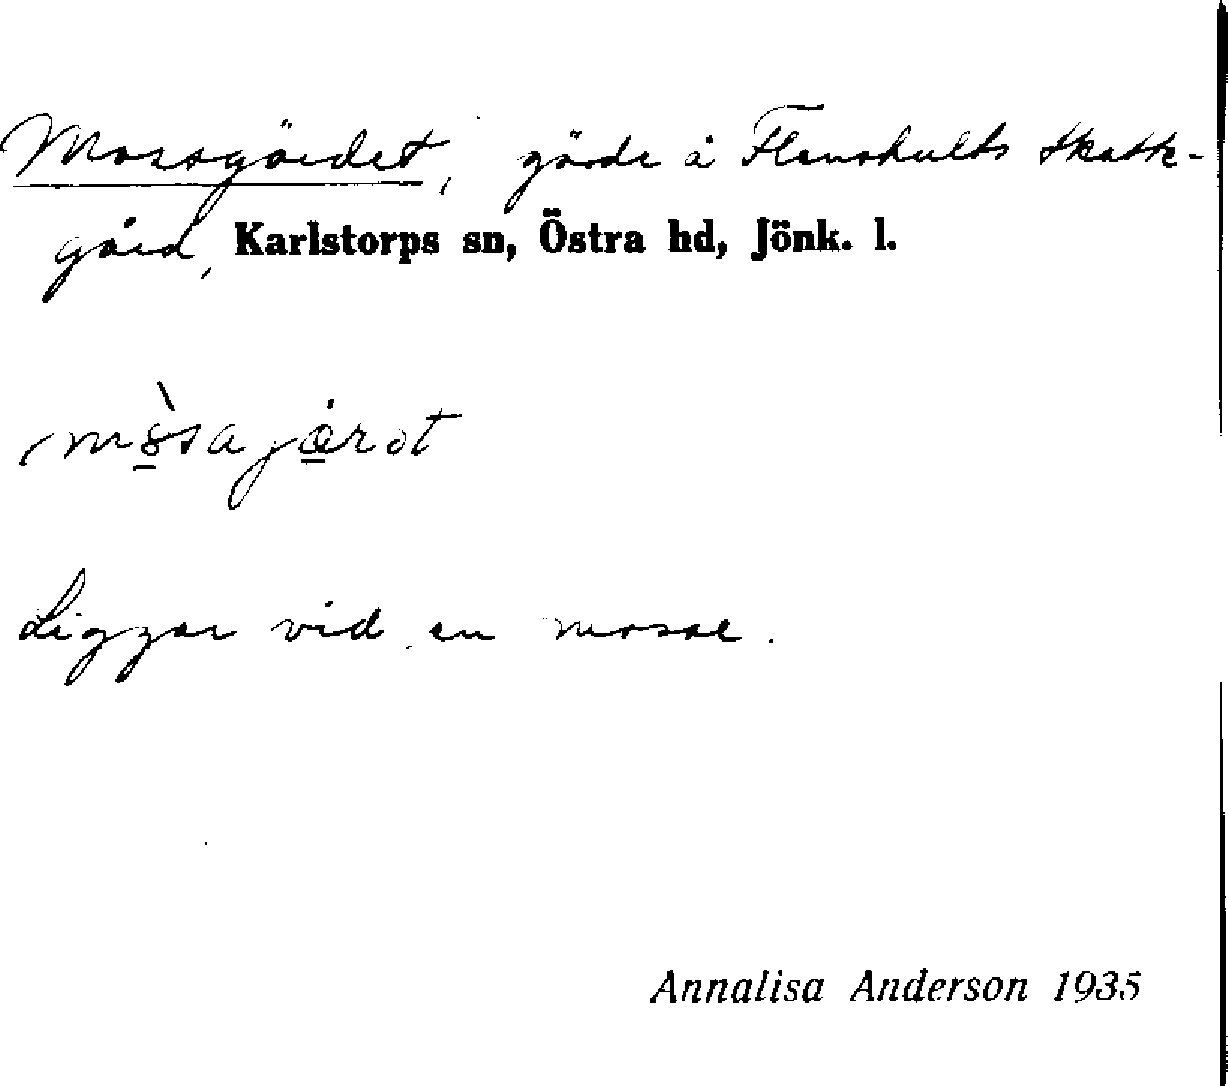 Mossgärdet, gärde å Flenshults Skatte-
gård, Karlstorps sn, Östra hd, Jönk. l.
Ligger vid en mosse.
Annalisa Anderson 1935